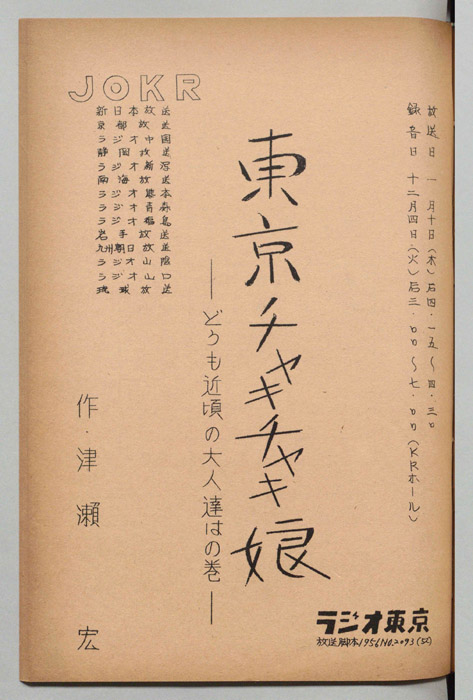 放送日 一月十日(木)后四・一五〜四・三〇
録音日 十二月四日(火)后三・〇〇〜七・〇〇(KRホール)
東京チャキチャキ娘
――どうも近頃の大人達はの巻――
JOKR
新日本放送
京都放送
ラジオ中国
静岡放送
ラジオ新潟
南海放送
ラジオ熊本
ラジオ青森
ラジオ福島
岩手放送
九州朝日放送
ラジオ山陰
ラジオ山口
琉球放送
作・津瀬 宏
ラジオ東京
放送脚本1956NO.2093(52)